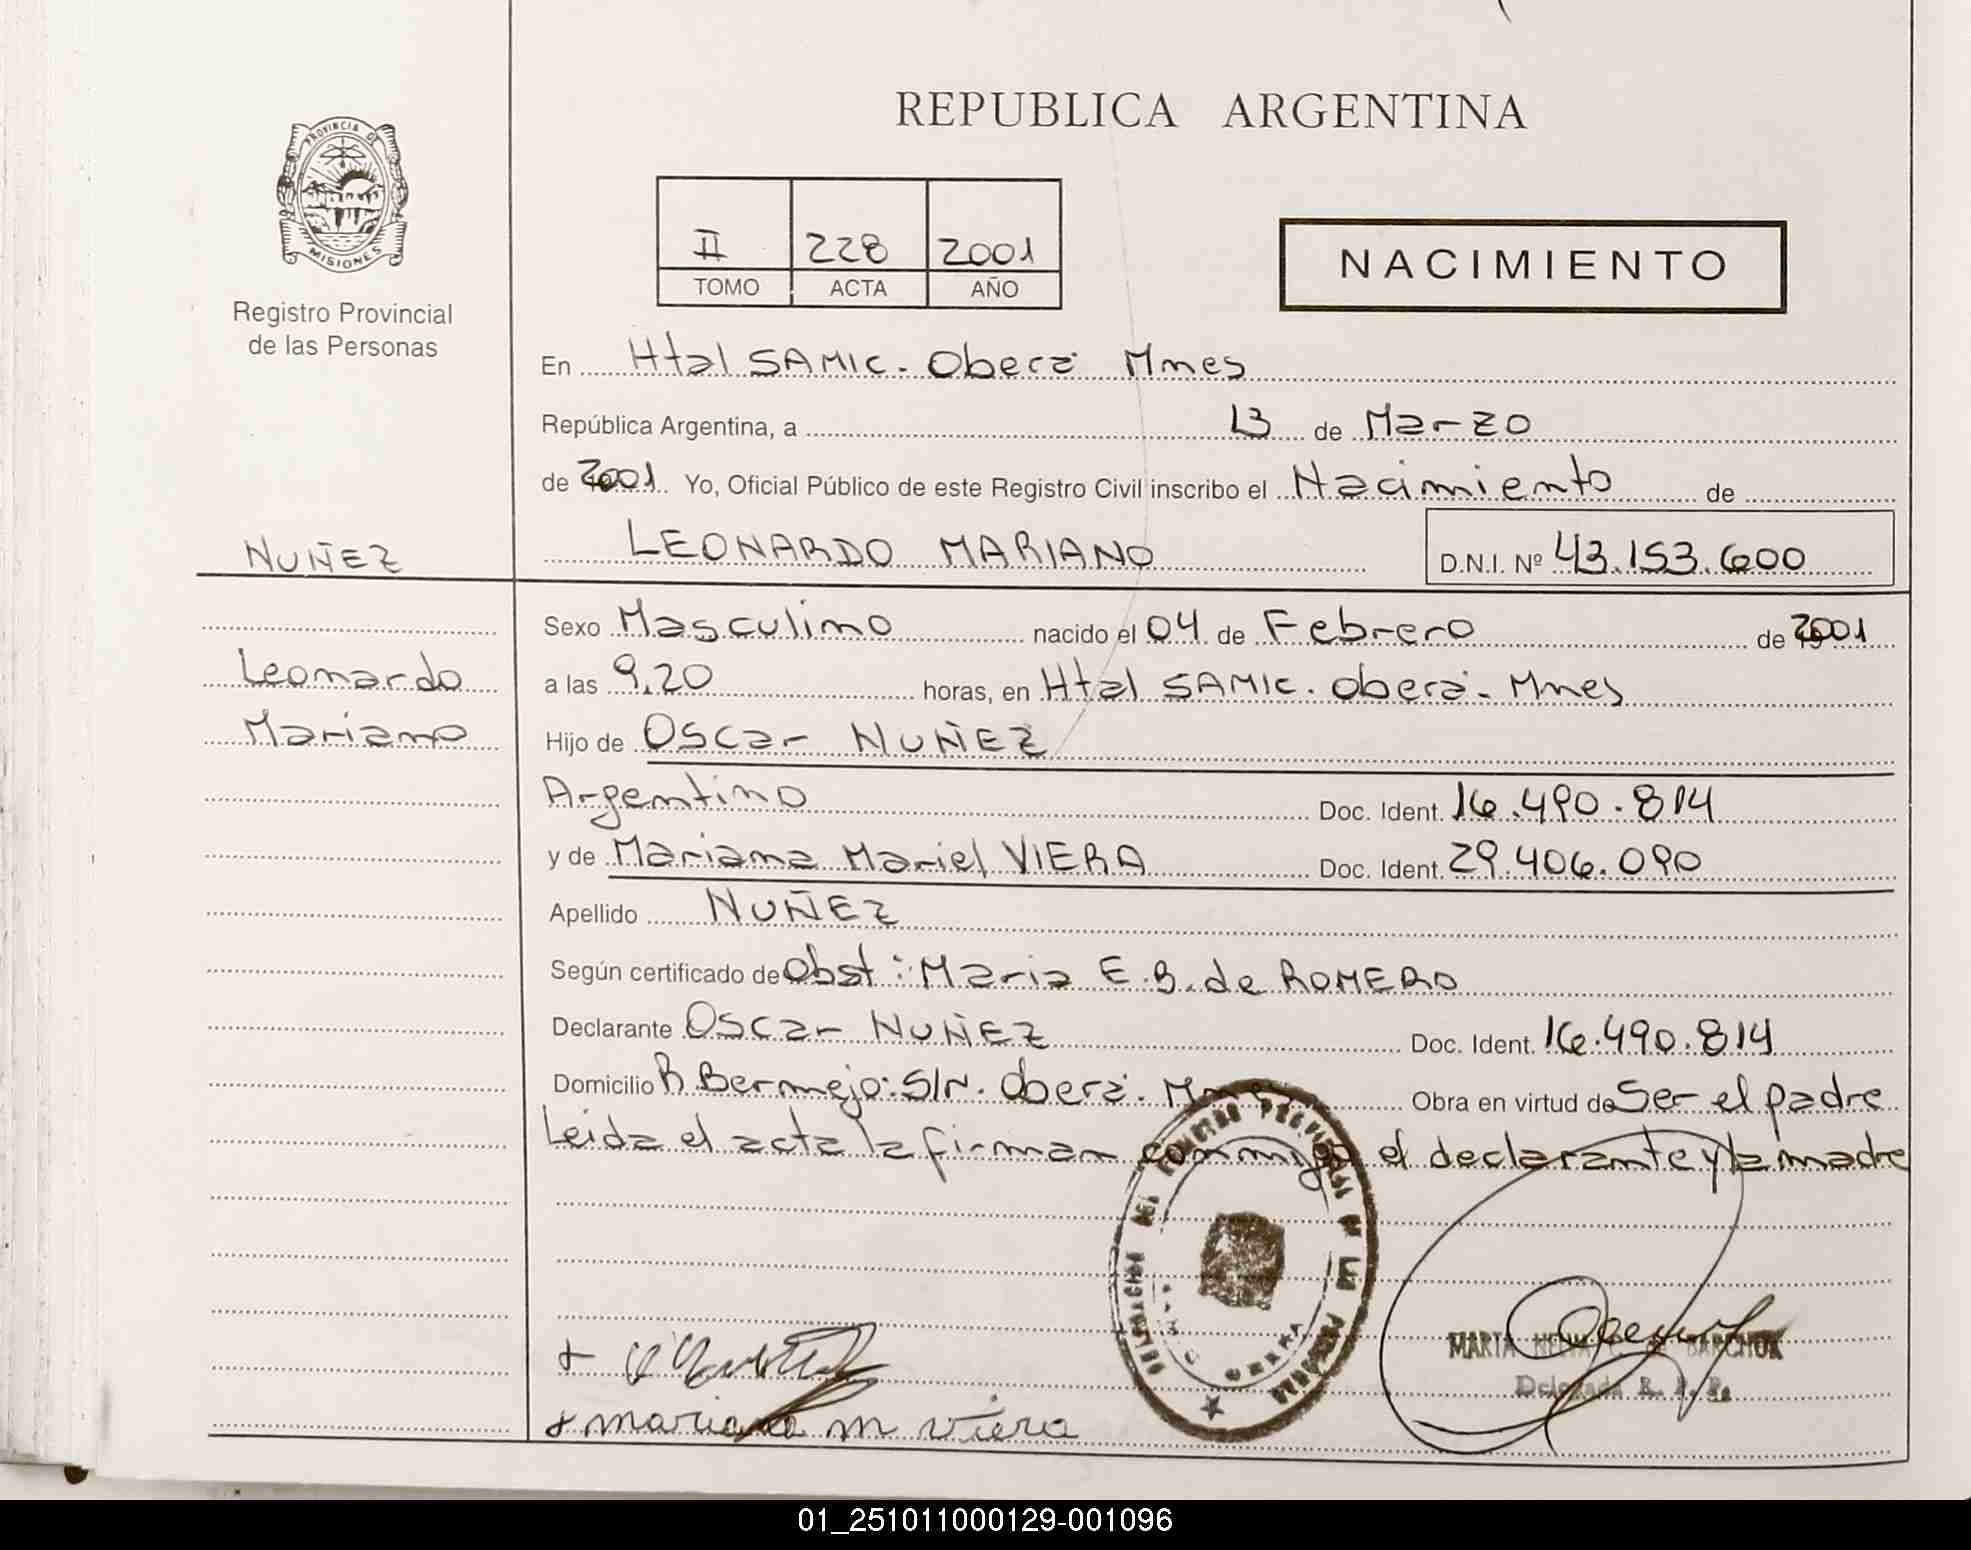 REPUBLICA ARGENTINA
PROVINCIA DE
MISIONES
Registro Provincial
de las Personas
II 228 2001
TOMO ACTA AÑO
NACIMIENTO
En Htal SAMIC. Oberá Mnes
República Argentina, a 13 de Marzo
de 2001 Yo, Oficial Público de este Registro Civil inscribo el Nacimiento de
NUÑEZ
LEONARDO MARIANO D.N.I. Nº 43.153.600
Leonardo
Mariano
Sexo Masculino nacido el 04 de Febrero de 2001
a las 9,20 horas, en Htal SAMIC. Oberá. Mnes
Hijo de Oscar NUÑEZ
Argentino Doc. Ident. 16.490.814
y de Mariana Mariel VIERA Doc. Ident. 29.406.090
Apellido NUÑEZ
Según certificado de Obst: Maria E.B. de ROMERO
Declarante Oscar NUÑEZ Doc. Ident. 16.490.814
Domicilio B. Bermejo: S/N. Oberá. Mnes Obra en virtud de Ser el padre
Leida el acta la firman conmigo el declarante y la madre
DELEGACION DEL REGISTRO PROVINCIAL DE LAS PERSONAS
OBERA
MARIA C. de BARCHUK
Delegada R. P. P.
+ mariana m viera
01_251011000129-001096